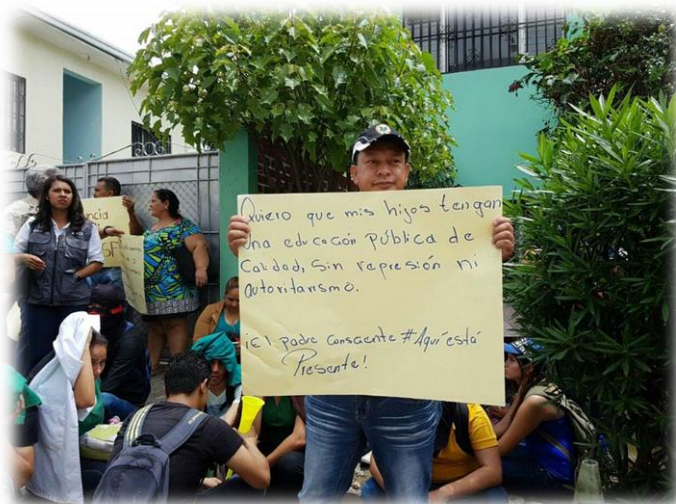 Quiero que mis hijos tengan
Una educación Pública de
Calidad, Sin represión ni
autoritarismo.
¡El padre consciente #Aquí está
Presente!